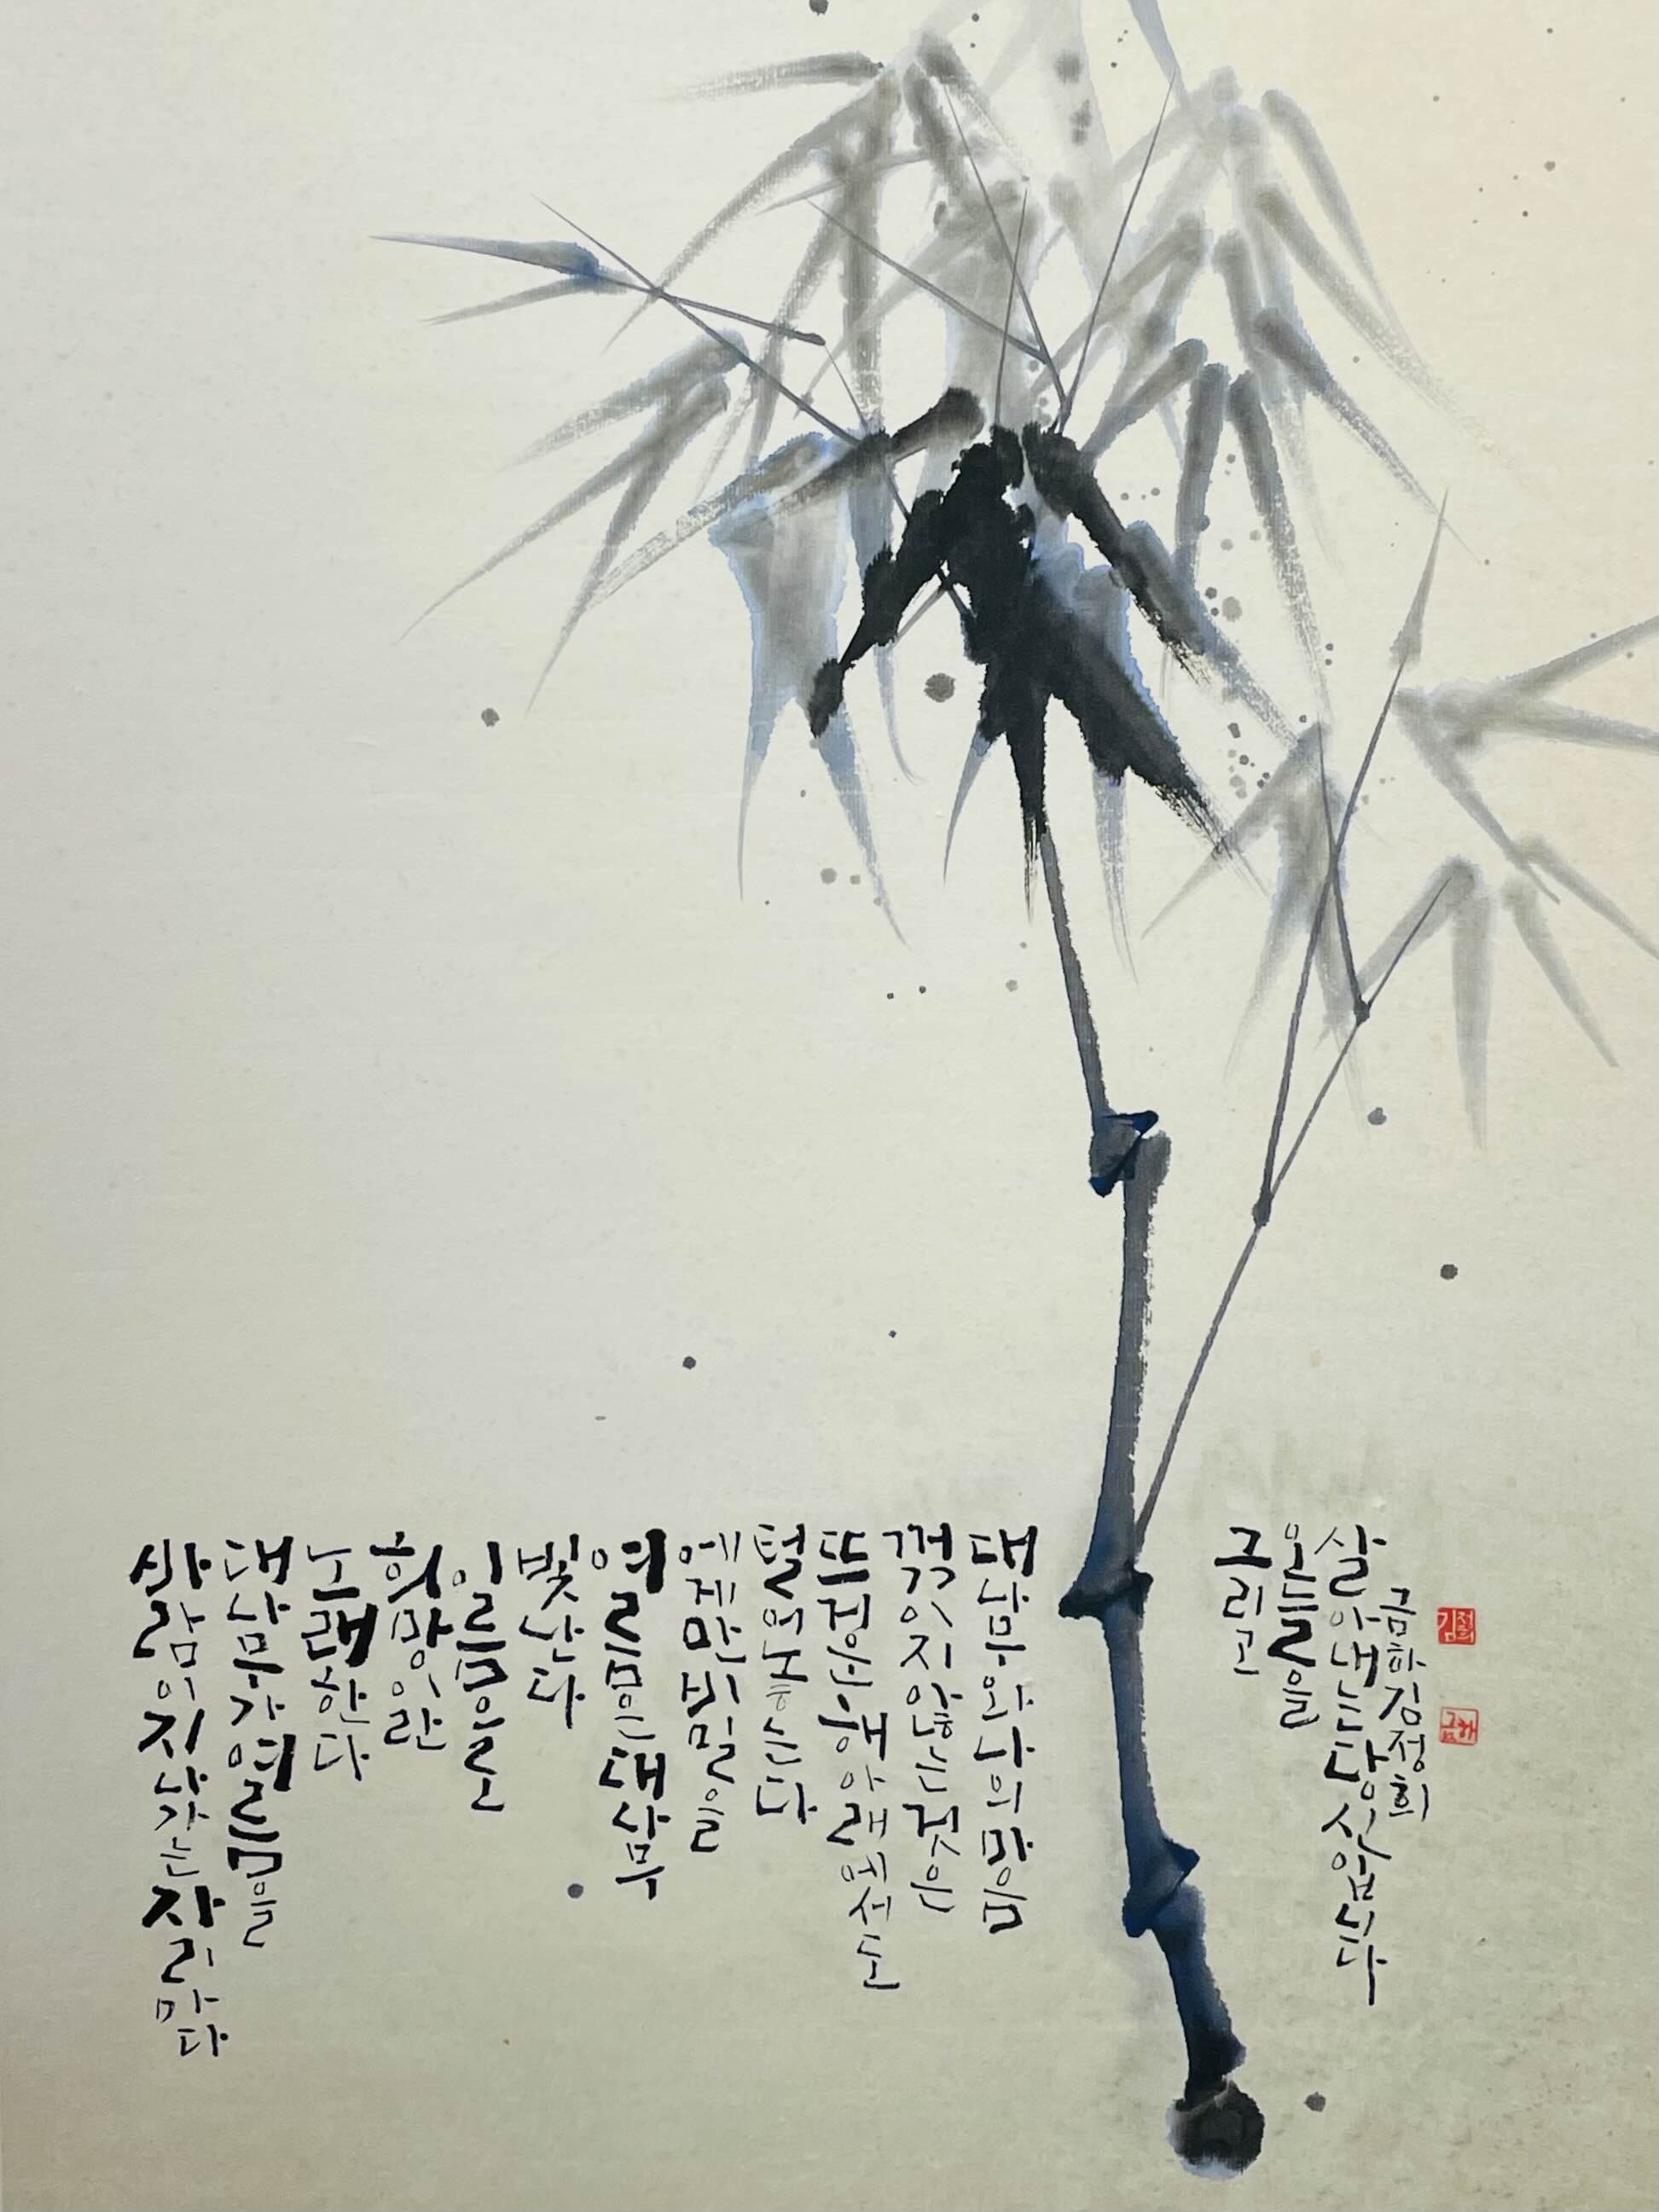 사람이 지나간 자리마다
대나무가 여름을
노래한다
희망이란
이름으로
빛난다
여름은 대나무
에게만 비밀을
털어놓는다
뜨거운 해 아래에서도
꺾이지 않는 것은
대나무와 나의 마음
그리고
오늘을
살아내는 당신입니다
금하 김정희